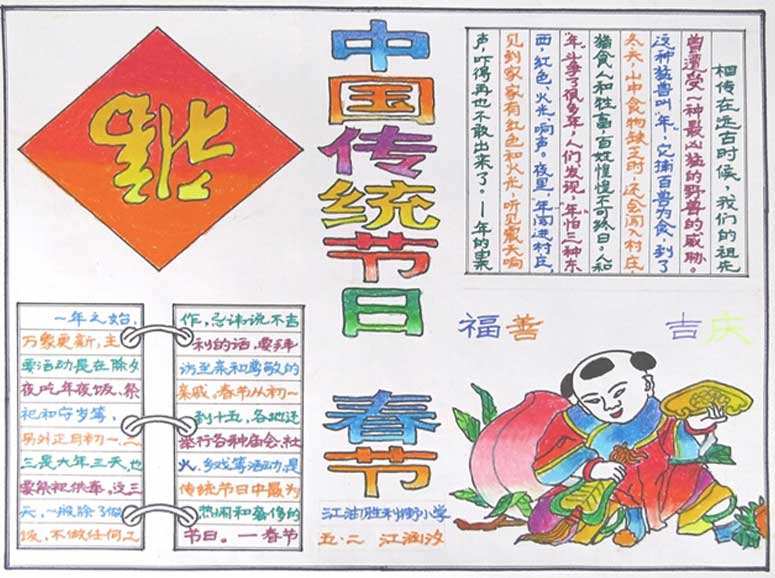 福
中国传统节日
春节
相传在远古时候，我们的祖先
曾遭受一种最凶猛的野兽的威胁。
这种猛兽叫“年”，它捕百兽为食，到了
冬天，山中食物缺乏时，还会闯入村庄，
猎食人和牲畜，百姓惶惶不可终日。人和
“年”斗争了很多年，人们发现，“年”怕三种东
西，红色、火光、响声。夜里，年闯进村庄，
见到家家有红色和火光，听见震天响
声，吓得再也不敢出来了。——年的
一年之始，
万象更新，主
要活动是在除夕
夜吃年夜饭、祭
祀和守岁等，
另外正月初一、二、
三是大年三天，也
要祭祀供奉。这三
天，一般除了做
饭，不做任何工
作，忌讳说不吉
利的话，要拜
访至亲和尊敬的
亲戚。春节从初一
到十五，各地还
举行各种庙会、社
火、乡戏等活动，是
传统节日中最为
热闹和奢侈的
节日。——春节
福善 吉庆
江油胜利街小学
五·二 江涵汐